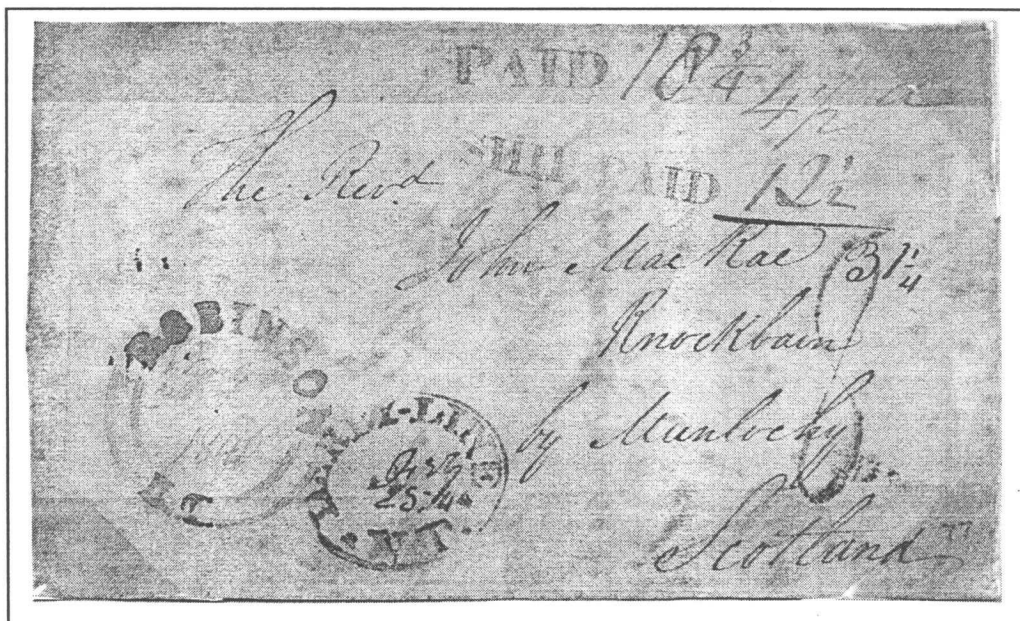 PAID 18 3/4
SHIP PAID 12½
The Revd.
John MacRae
31¼
Knockbain
by Munlochy
Scotland
ROBINSON
VT
LINE
VT.